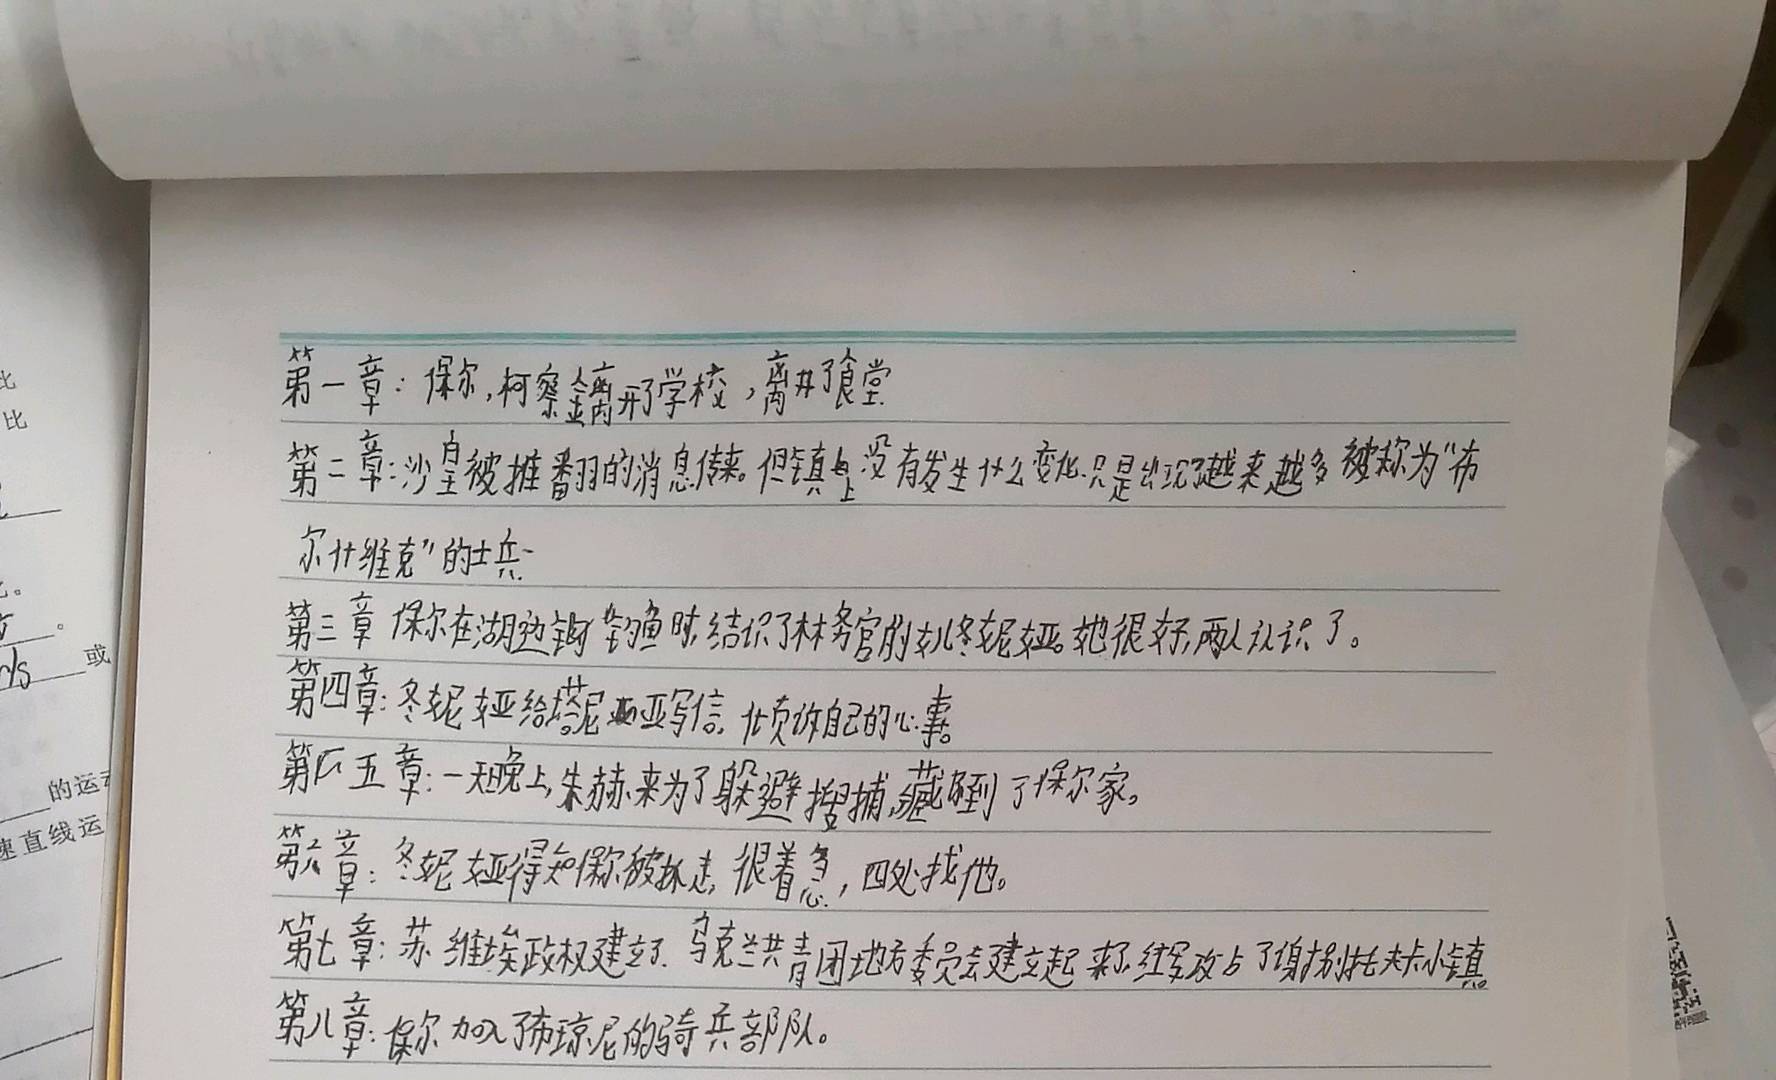 第一章：保尔,柯察金离开了学校,离开了食堂
第二章:沙皇被推翻的消息传来。但镇上没有发生什么变化.只是出现了越来越多被称为“布
尔什维克”的士兵
第三章 保尔在湖边钓鱼时,结识了林务官的女儿冬妮娅。她很好,两人认识了。
第四章:冬妮娅给塔尼亚写信。倾诉自己的心事。
第五章:一天晚上,朱赫来为了躲避搜捕,藏到了保尔家。
第六章:冬妮娅得知保尔被抓走,很着急,四处找他。
第七章:苏维埃政权建立了.乌克兰共青团地方委员会建立起来了.红军攻占了谢别托夫卡小镇
第八章:保尔加入了布琼尼的骑兵部队。
比
比
。
m/s 或
的运动
速直线运